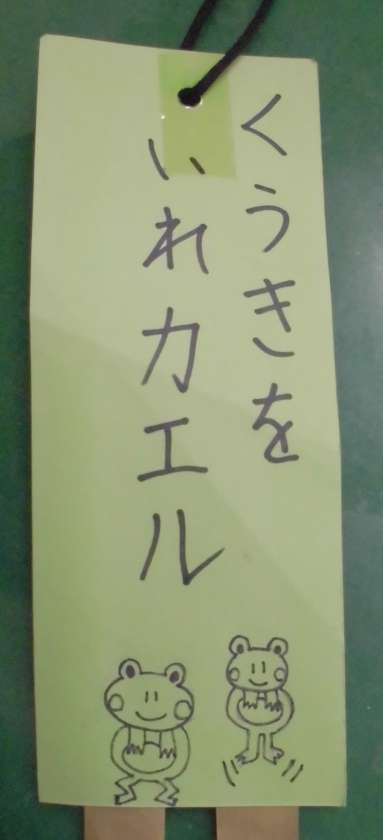 くうきを
いれカエル